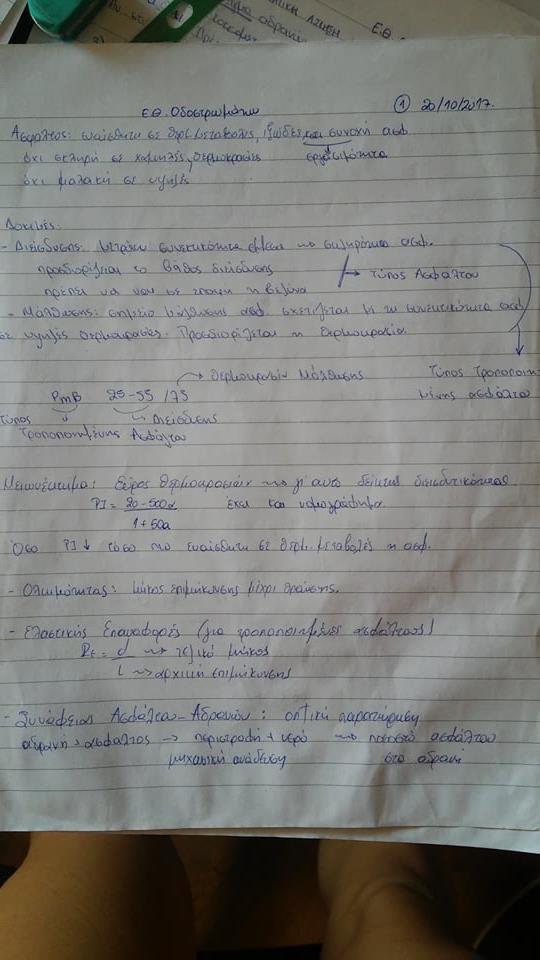 Ε.Θ. Οδοστρωμάτων ① 20/10/2017.
Ασφαλτος: ευαίσθητη σε θερμ. μεταβολές, ιξώδες και συνοχή ασφ.
όχι σκληρή σε χαμηλές θερμοκρασίες εργασιμότητα
όχι μαλακή σε υψηλές
Δοκιμές:
- Διείσδυσης: Μετράει συνεκτικότητα σκληρότητα ασφ.
προσδιορίζεται το βάθος διείσδυσης
πρέπει να ναι σε η βελόνα
Τύπος Ασφάλτου
- Μάλθωσης: σημείο μάλθωσης ασφ. σχετίζεται με τη συνεκτικότητα ασφ
σε υψηλές θερμοκρασίες. Προσδιορίζεται η θερμοκρασία.
Θερμοκρασία Μάλθωσης Τύπος Τροποποιη
PmB 25-55 /75 μένης ασφάλτου
Τύπος Διείσδυσης
Τροποποιημένης Ασφάλτου
Μειονέκτημα: Εύρος θερμοκρασιών γι' αυτό δείκτης διεισδυτικότητας
PI = 20-500a έχει και νομογράφημα.
1+50a
Όσο PI ↓ τόσο πιο ευαίσθητη σε θερμ. μεταβολές η ασφ.
- Ολκιμότητας: μήκος επιμήκυνσης μέχρι θραύσης.
- Ελαστικής Επαναφοράς (για τροποποιημένες ασφάλτους)
= d τελικό μήκος
L αρχική επιμήκυνσης
- Συνάφειας Ασφάλτου - Αδρανών: οπτική παρατήρηση
αδρανή + ασφαλτος → περιστροφή + νερό ποσοστό ασφάλτου
μηχανική ανάδευση στα αδρανή